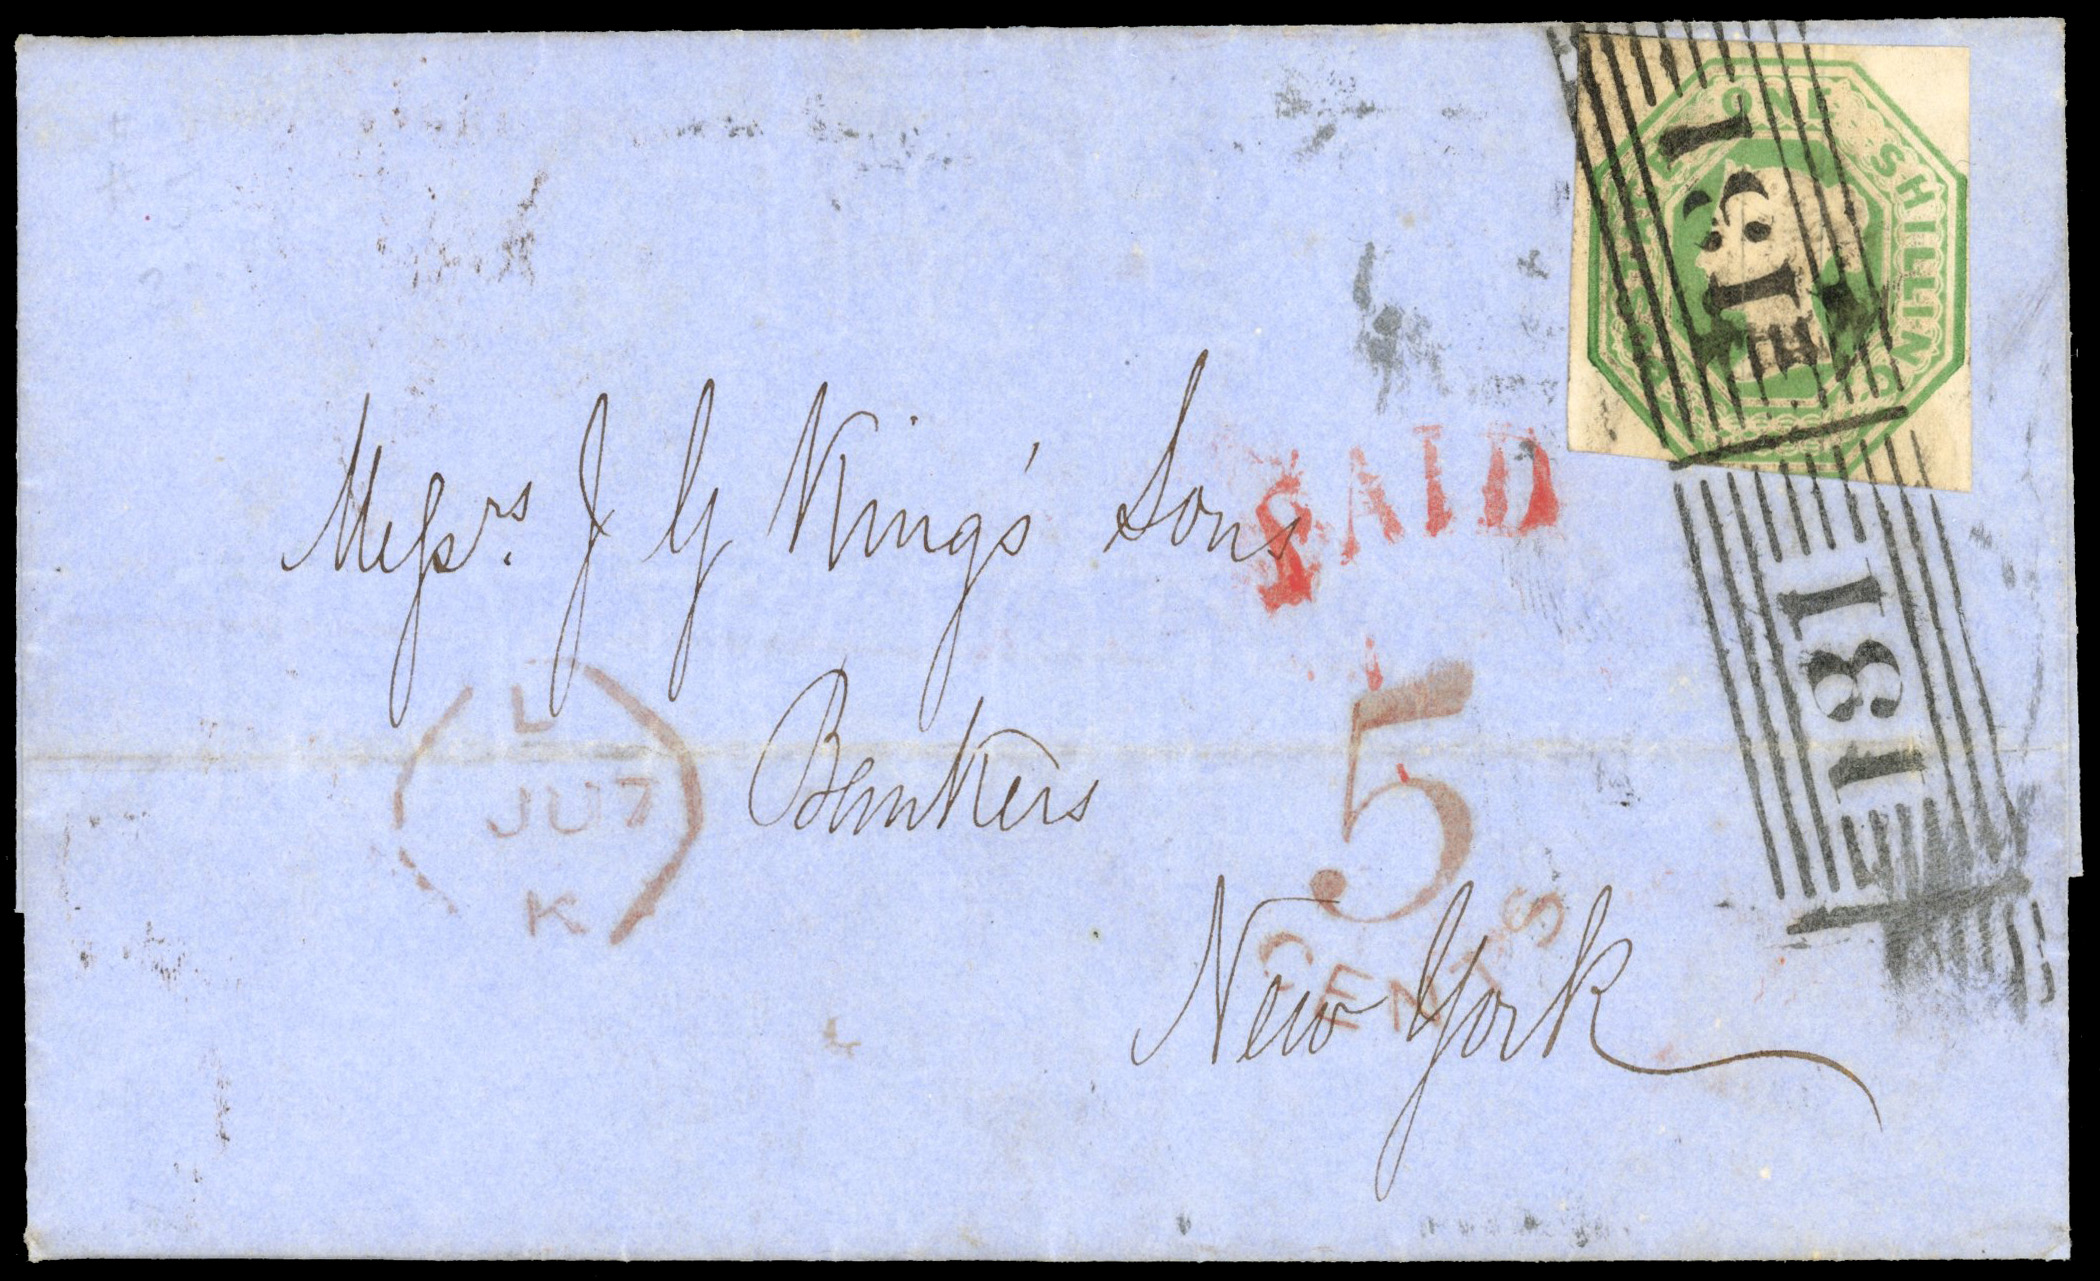 POSTAGE ONE SHILLING
131
131
PAID
Messrs. J G King's Sons
Bankers
New York
L
JU 7
K
5
CENTS